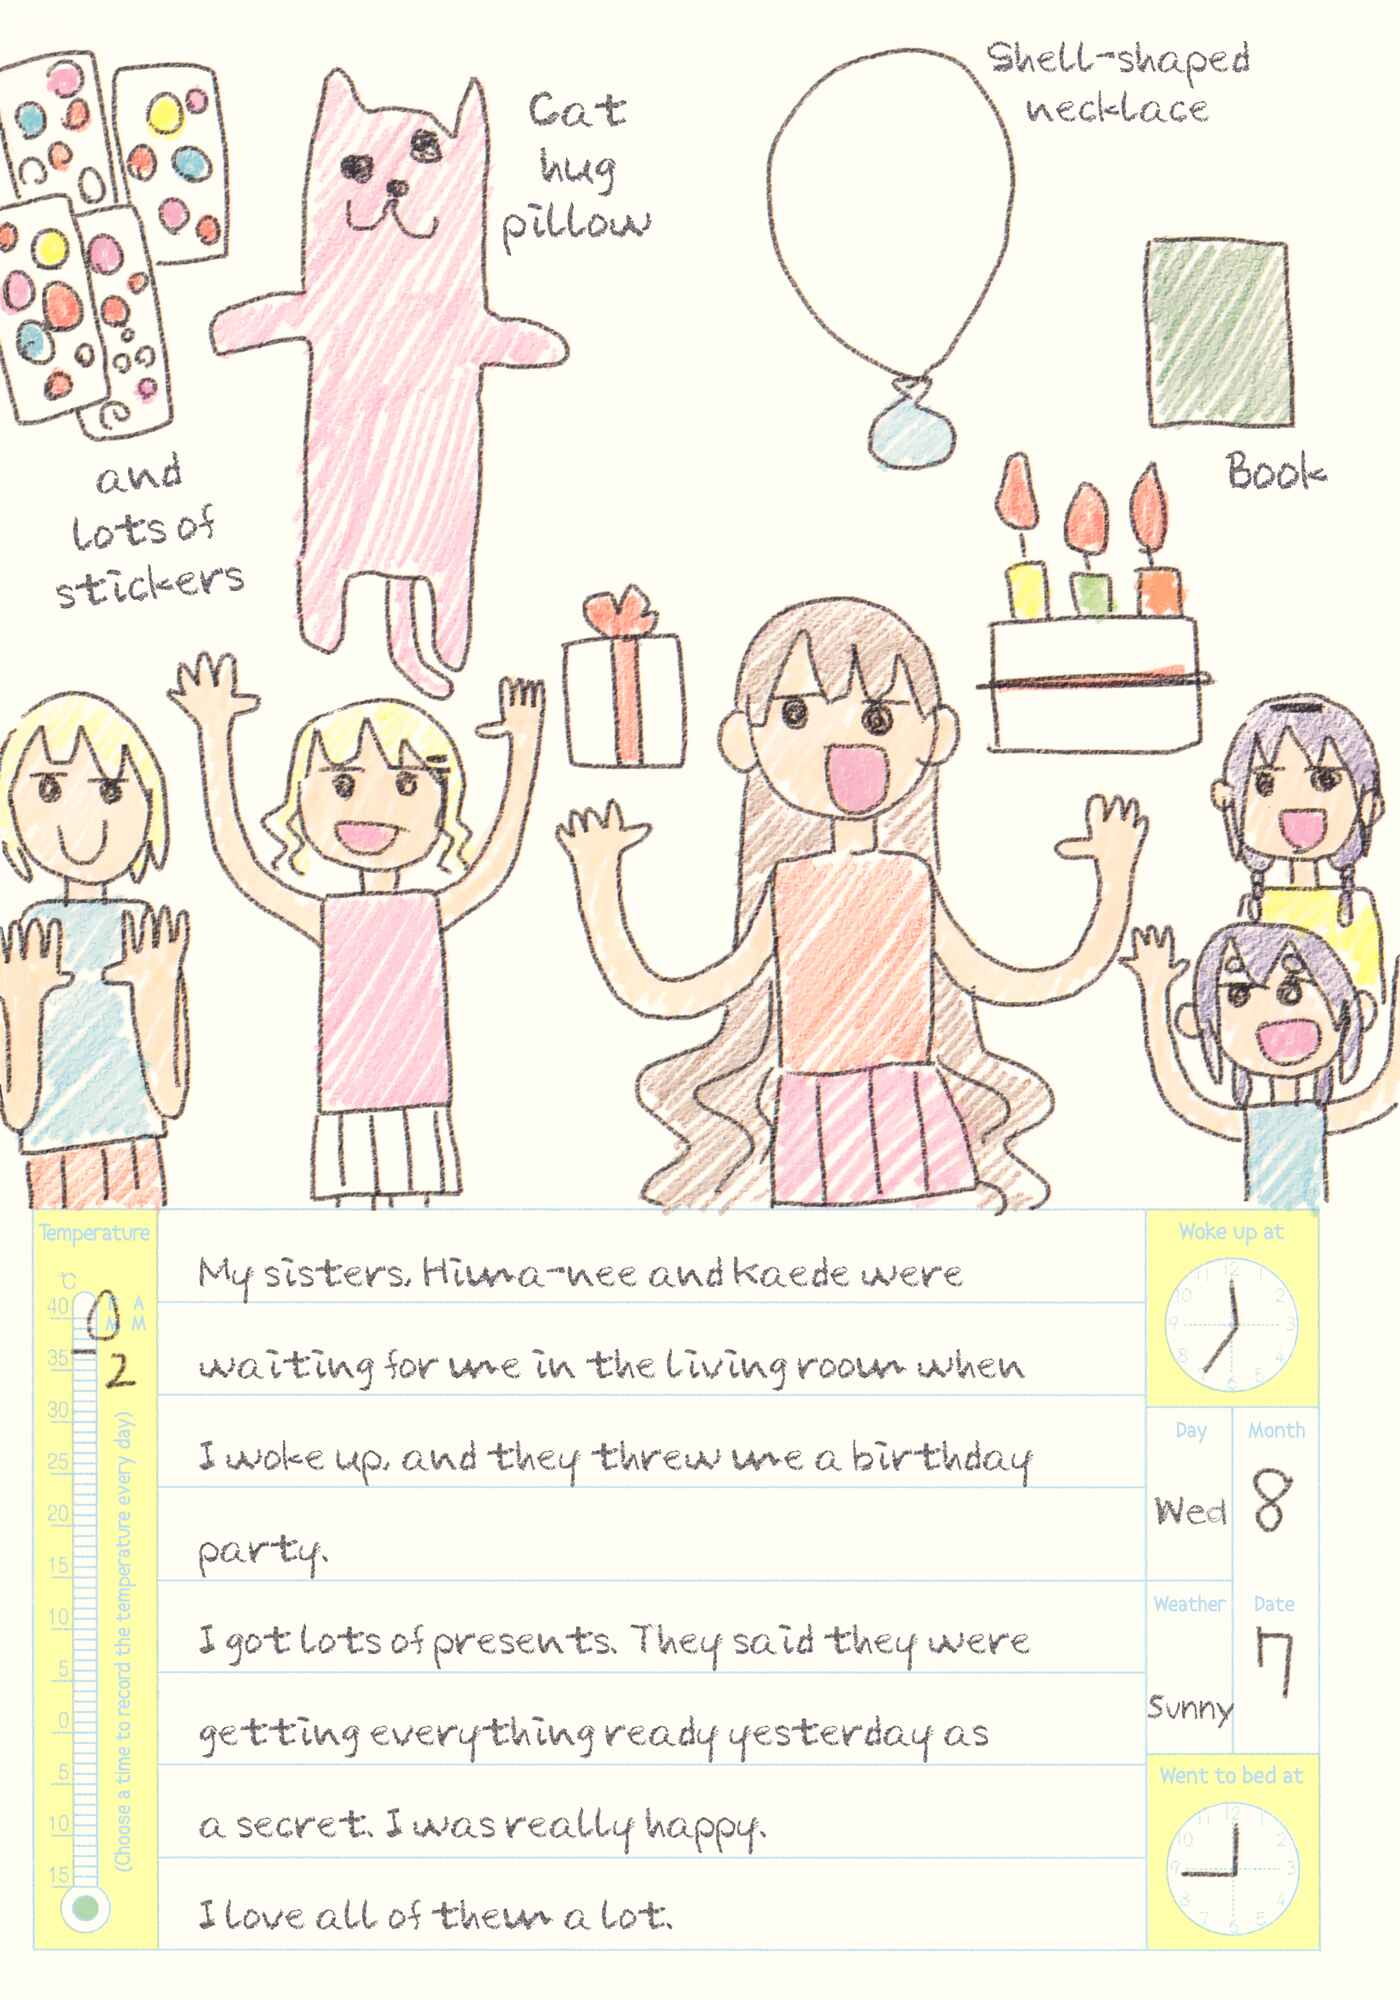 Shell-shaped
necklace
Cat
hug
pillow
Book
and
lots of
stickers
Temperature
℃
40
35
30
25
20
15
10
5
0
5
10
15
A
M
2
(Choose a time to record the temperature every day)
My sisters, Hima-nee and Kaede were
waiting for me in the living room when
I woke up, and they threw me a birthday
party.
I got lots of presents. They said they were
getting everything ready yesterday as
a secret. I was really happy.
I love all of them a lot.
Woke up at
12
1
2
3
4
5
6
8
9
10
11
Day
Wed
Month
8
Weather
Sunny
Date
7
Went to bed at
12
1
2
3
4
5
6
7
8
9
10
11